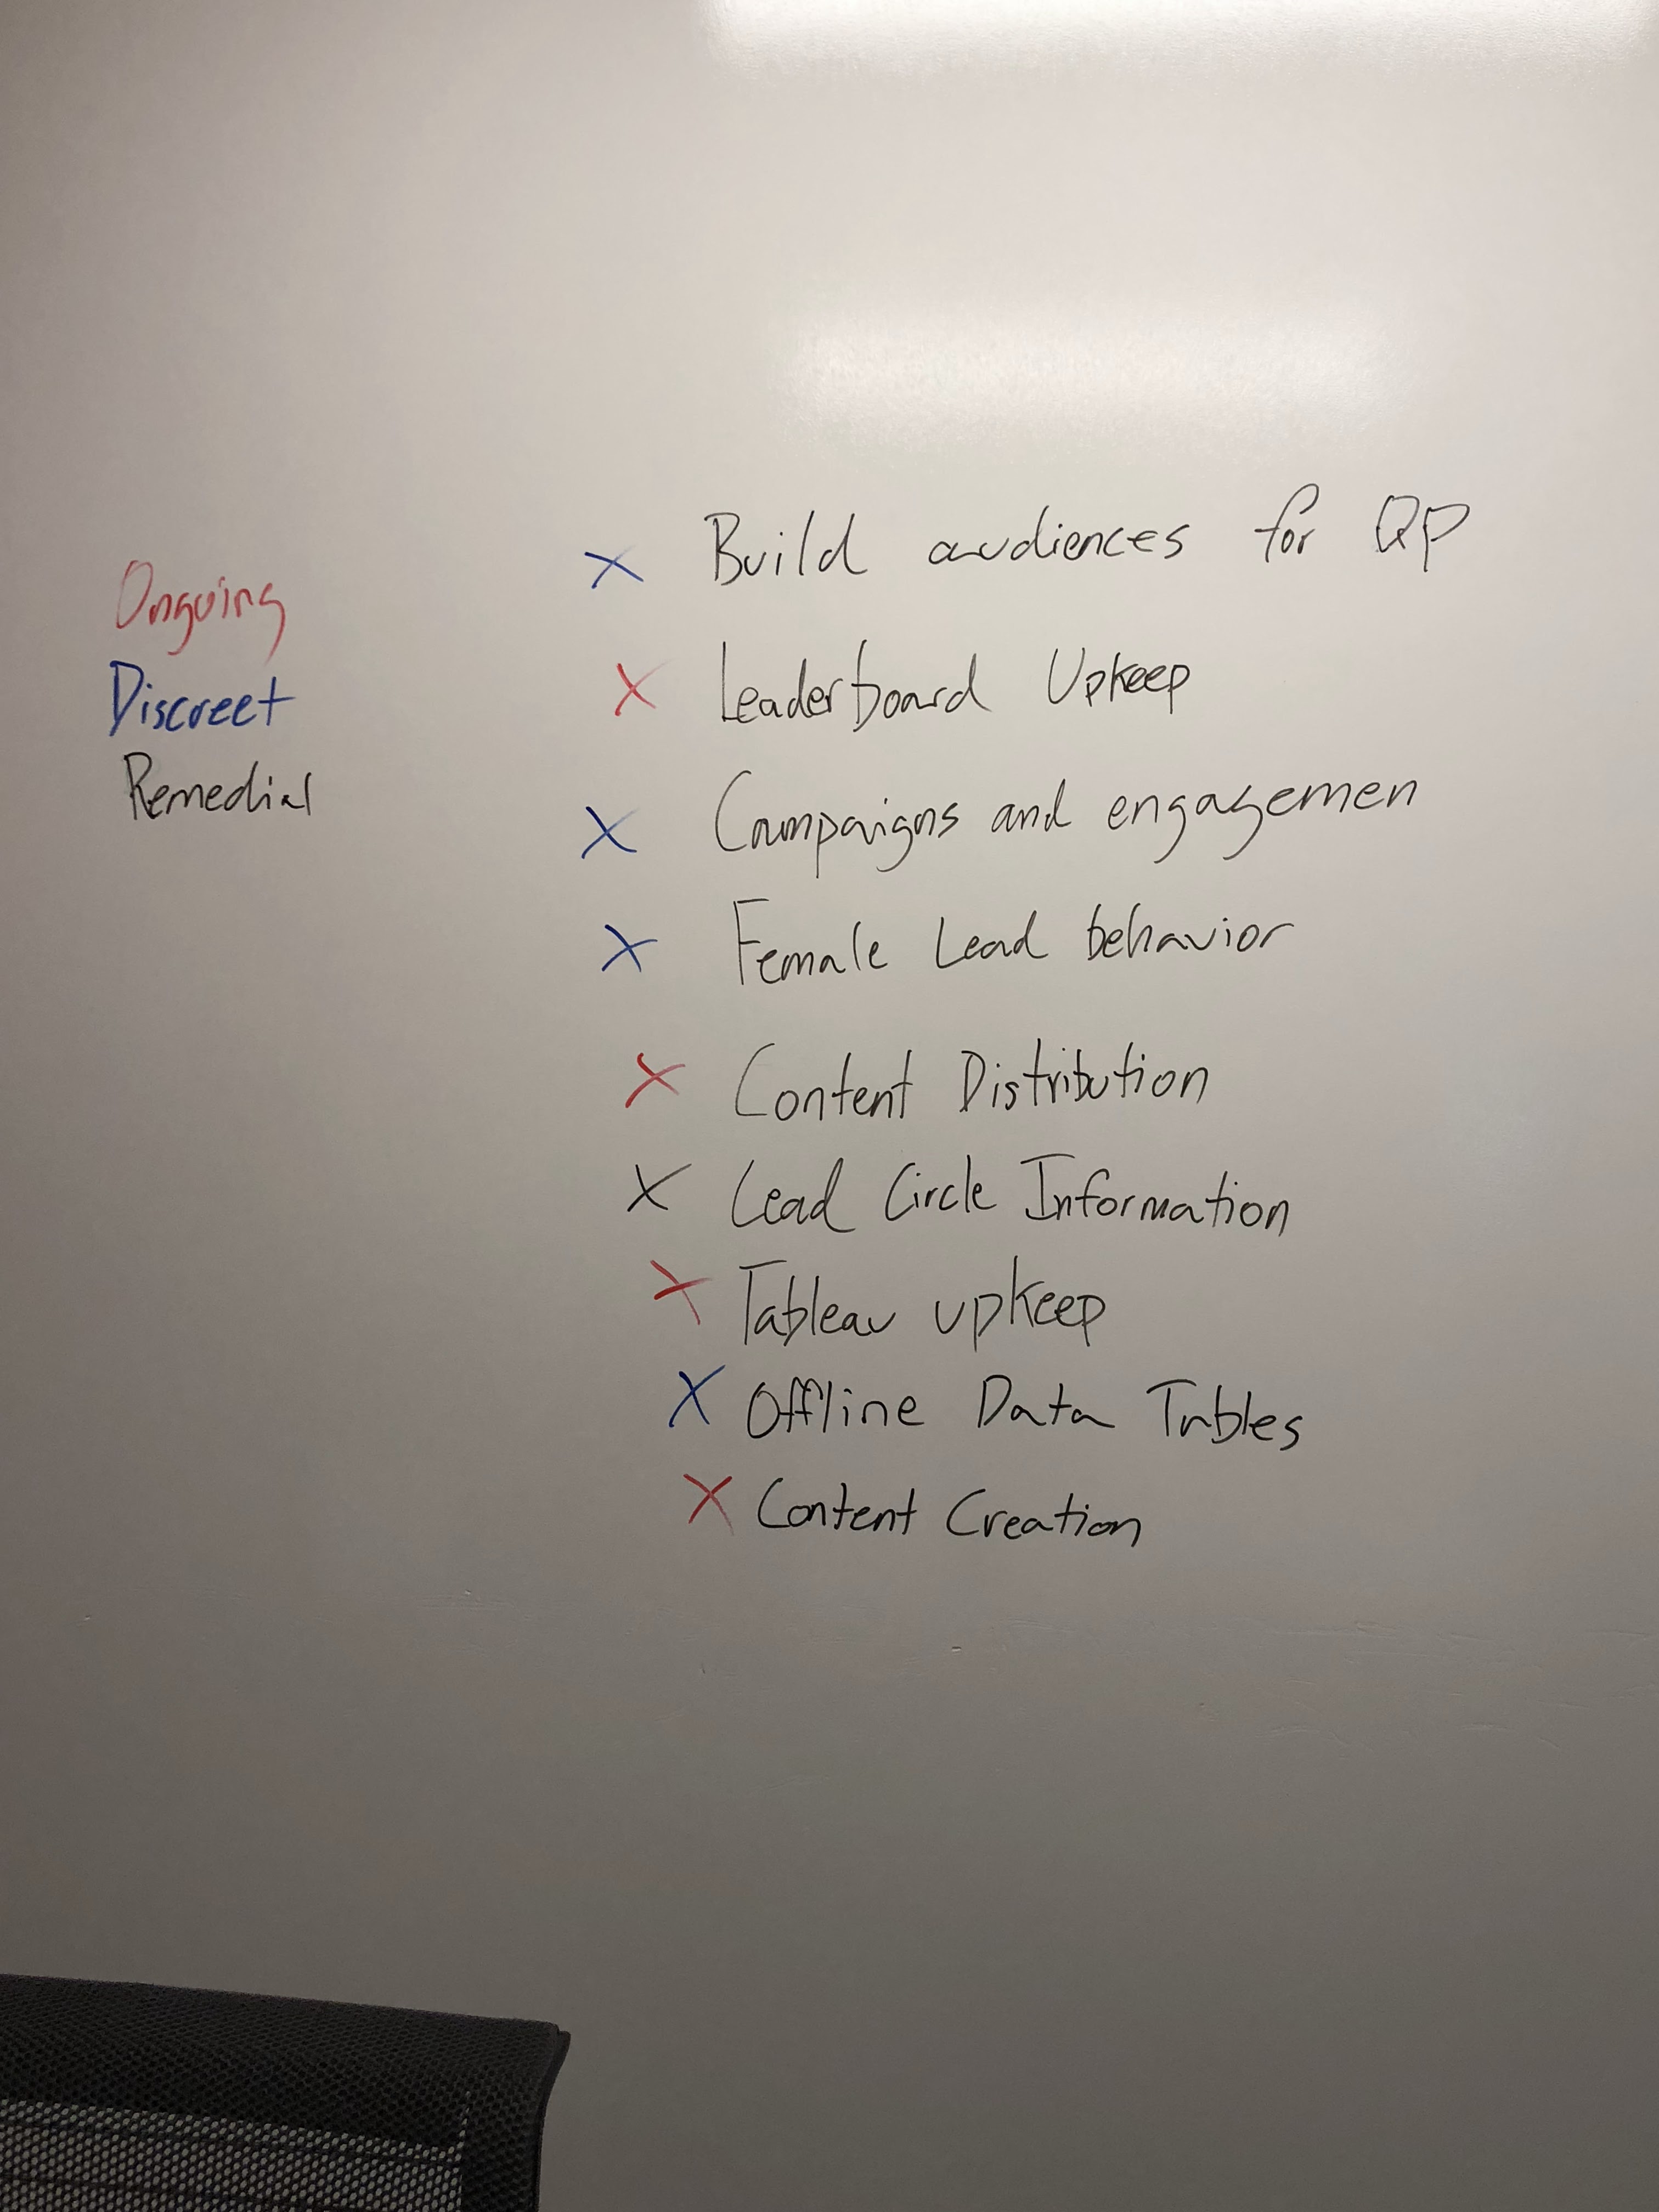 Ongoing
Discreet
Remedial
X Build audiences for QP
X Leaderboard Upkeep
X Campaigns and engagemen
X Female Lead behavior
X Content Distribution
X Lead Circle Information
X Tableau upkeep
X Offline Data Tables
X Content Creation